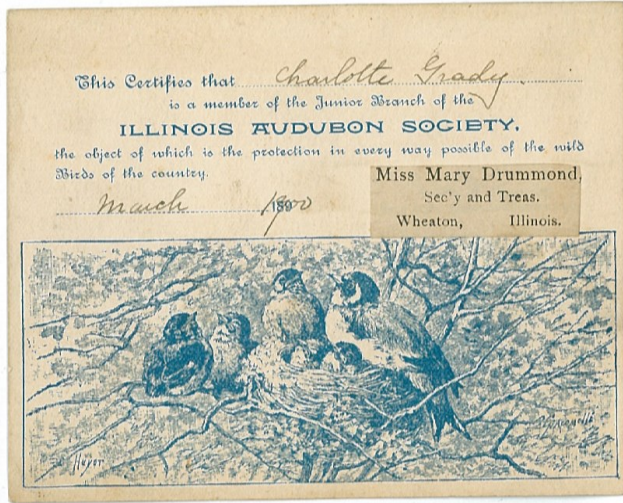 This Certifies that Charlotte Grady
is a member of the Junior Branch of the
ILLINOIS AUDUBON SOCIETY,
the object of which is the protection in every way possible of the wild
Birds of the country.
Miss Mary Drummond,
Sec'y and Treas.
Wheaton, Illinois.
March 1900